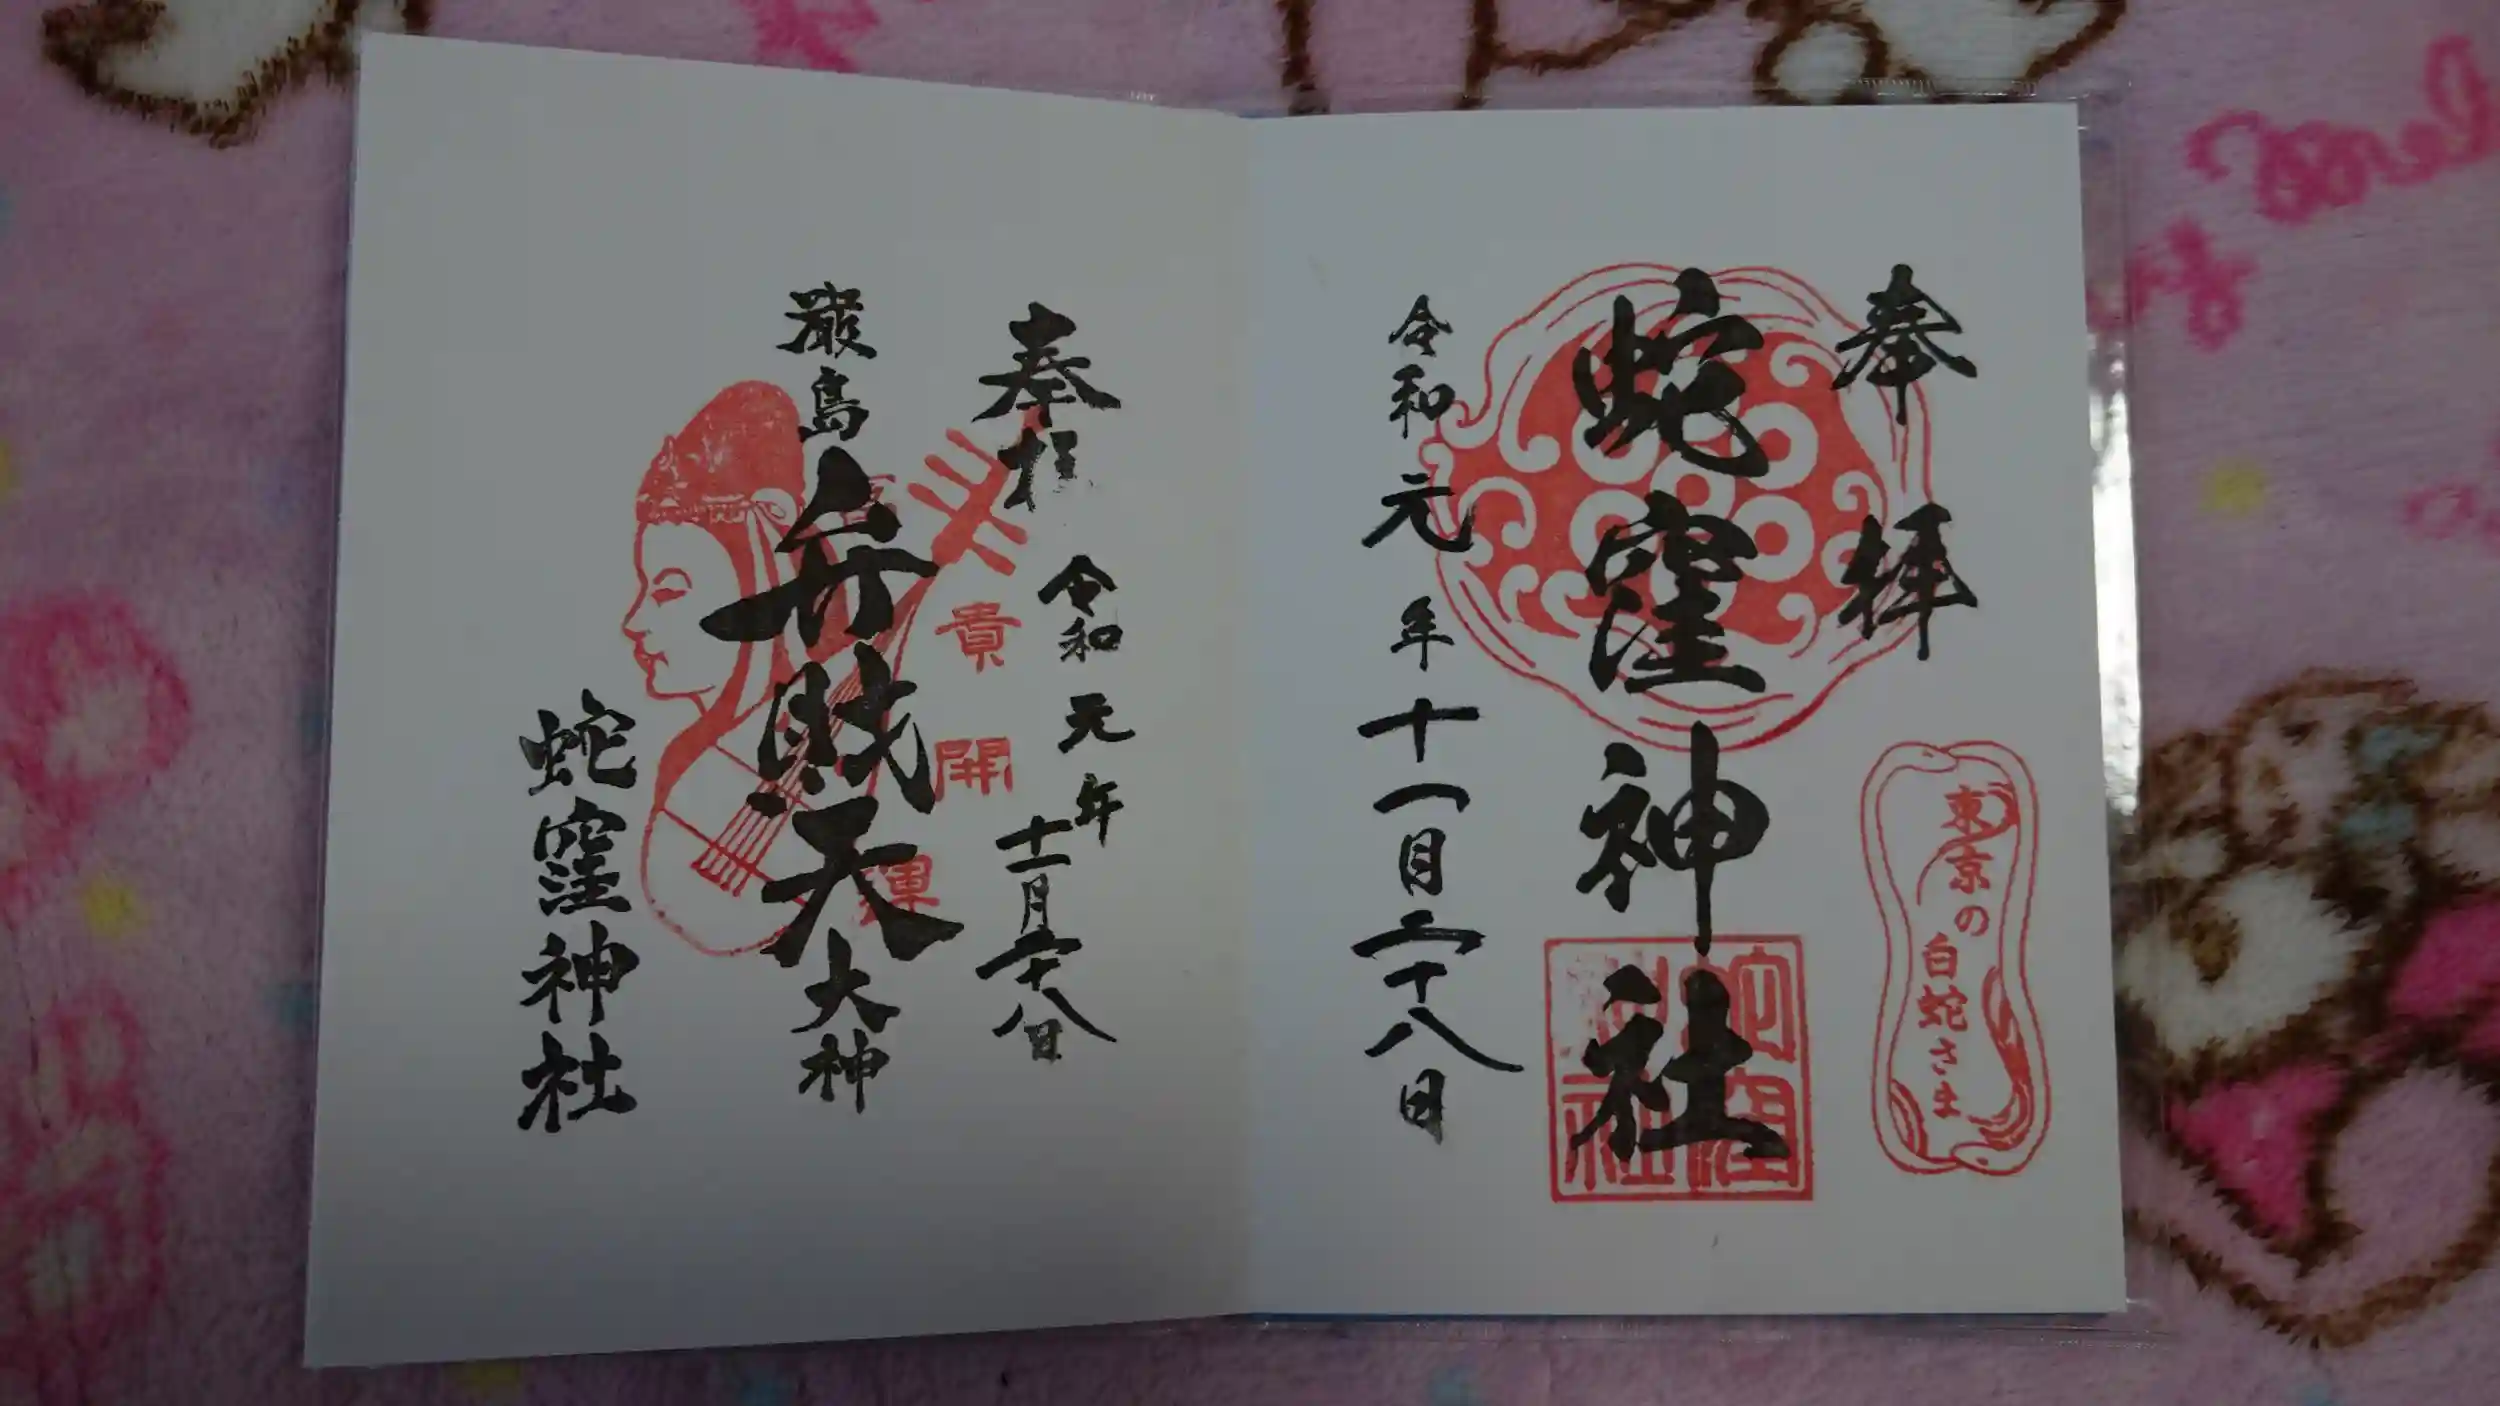 奉拝
蛇窪神社
令和元年十一月二十八日
東京の
白蛇さま
蛇窪
神社
奉拝
令和元年
十一月二十八日
厳島弁財天大神
貴
開
運
蛇窪神社